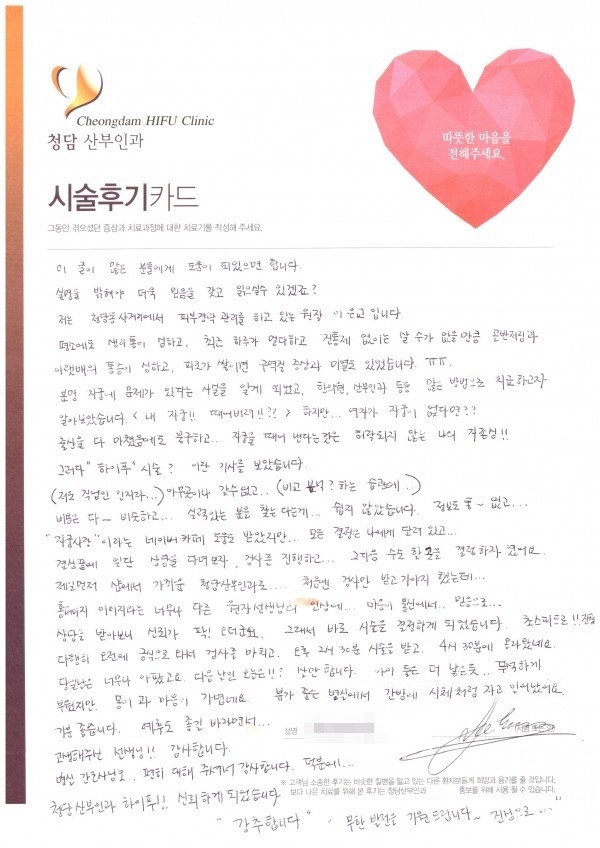 Cheongdam HIFU Clinic
청담 산부인과
따뜻한 마음을
전해주세요.
시술후기카드
그동안 겪으셨던 증상과 치료과정에 대한 치료기를 작성해 주세요.
이 글이 많은 분들에게 도움이 되었으면 합니다.
실명을 밝혀야 더욱 믿음을 갖고 읽으실수 있겠죠?
저는 청담동 사거리에서 피부경락 관리를 하고 있는 원장 이은교 입니다.
평소에도 생리통이 심하고, 최근 하루가 멀다하고 진통제 없이는 살 수가 없을만큼 골반저림과
아랫배의 통증이 심하고, 피로가 쌓이면 구역질 증상과 미열도 있었습니다. ㅠㅠ.
분명 자궁에 문제가 있다는 사실을 알게 되었고, 한의원, 산부인과 등등 많은 방법으로 치료하고자
알아보았습니다. < 내 자궁!! 떼어버려!!?? > 하지만... 여자가 자궁이 없다면??
출산을 다 마쳤음에도 불구하고... 자궁을 떼어 낸다는것은 허락되지 않는 나의 자존심!!
그러다 "하이푸" 시술? 이란 기사를 보았습니다.
(저도 직업인 인지라...) 아무곳이나 갈수없고... (비교 분석? 하는 습관에..)
비용은 다~ 비슷하고... 실력있는 분을 찾는다는게... 쉽지 않았습니다. 정보도 통~ 없고...
"자궁사랑"이라는 네이버카페 도움도 받았지만... 모든 결정은 나에게 달려 있고...
결심끝에 일단 상담을 다녀보자, 검사를 진행하고... 그다음 수술 할 곳을 결정하자 였어요.
제일먼저 샵에서 가까운 청담산부인과로.... 처음엔 검사만 받고 가야지 했는데...
홈페이지 이미지랑은 너무나 다른 현자선생님의 인상에... 마음이 불신에서.. 믿음으로...
상담을 받아보니 신뢰가 팍! 오더군요. 그래서 바로 시술을 결정하게 되었습니다. 초스피드로!!
다행히 오전에 금식으로 와서 검사를 마치고, 오후 2시 30분 시술을 받고, 4시 30분에 올라왔네요.
당일날은 너무나 아팠고요. 다음날인 오늘은!!? 살만 합니다. 아이 둘은 더 낳은듯... 묵직하게
부웠지만. 몸이 과 마음이 가볍네요. 뷰가 좋은 병실에서 간밤에 시체처럼 자고 일어났어요.
기분 좋습니다. 예후도 좋길 바라면서...
성명
고생해주신 선생님!! 감사합니다.
병실 간호사님도, 편히 대해 주셔서 감사합니다. 덕분에...
※ 고객님 소중한 후기는 비슷한 질병을 앓고 있는 다른 환자분들께 희망과 용기를 줄 것입니다.
보다 나은 치료를 위해 본 후기는 청담산부인과 홍보를 위해 사용 될 수 있습니다.
청담 산부인과 하이푸!! 신뢰하게 되었습니다.
"강추합니다". 무한 발전을 기원드립니다~ 진심으로...